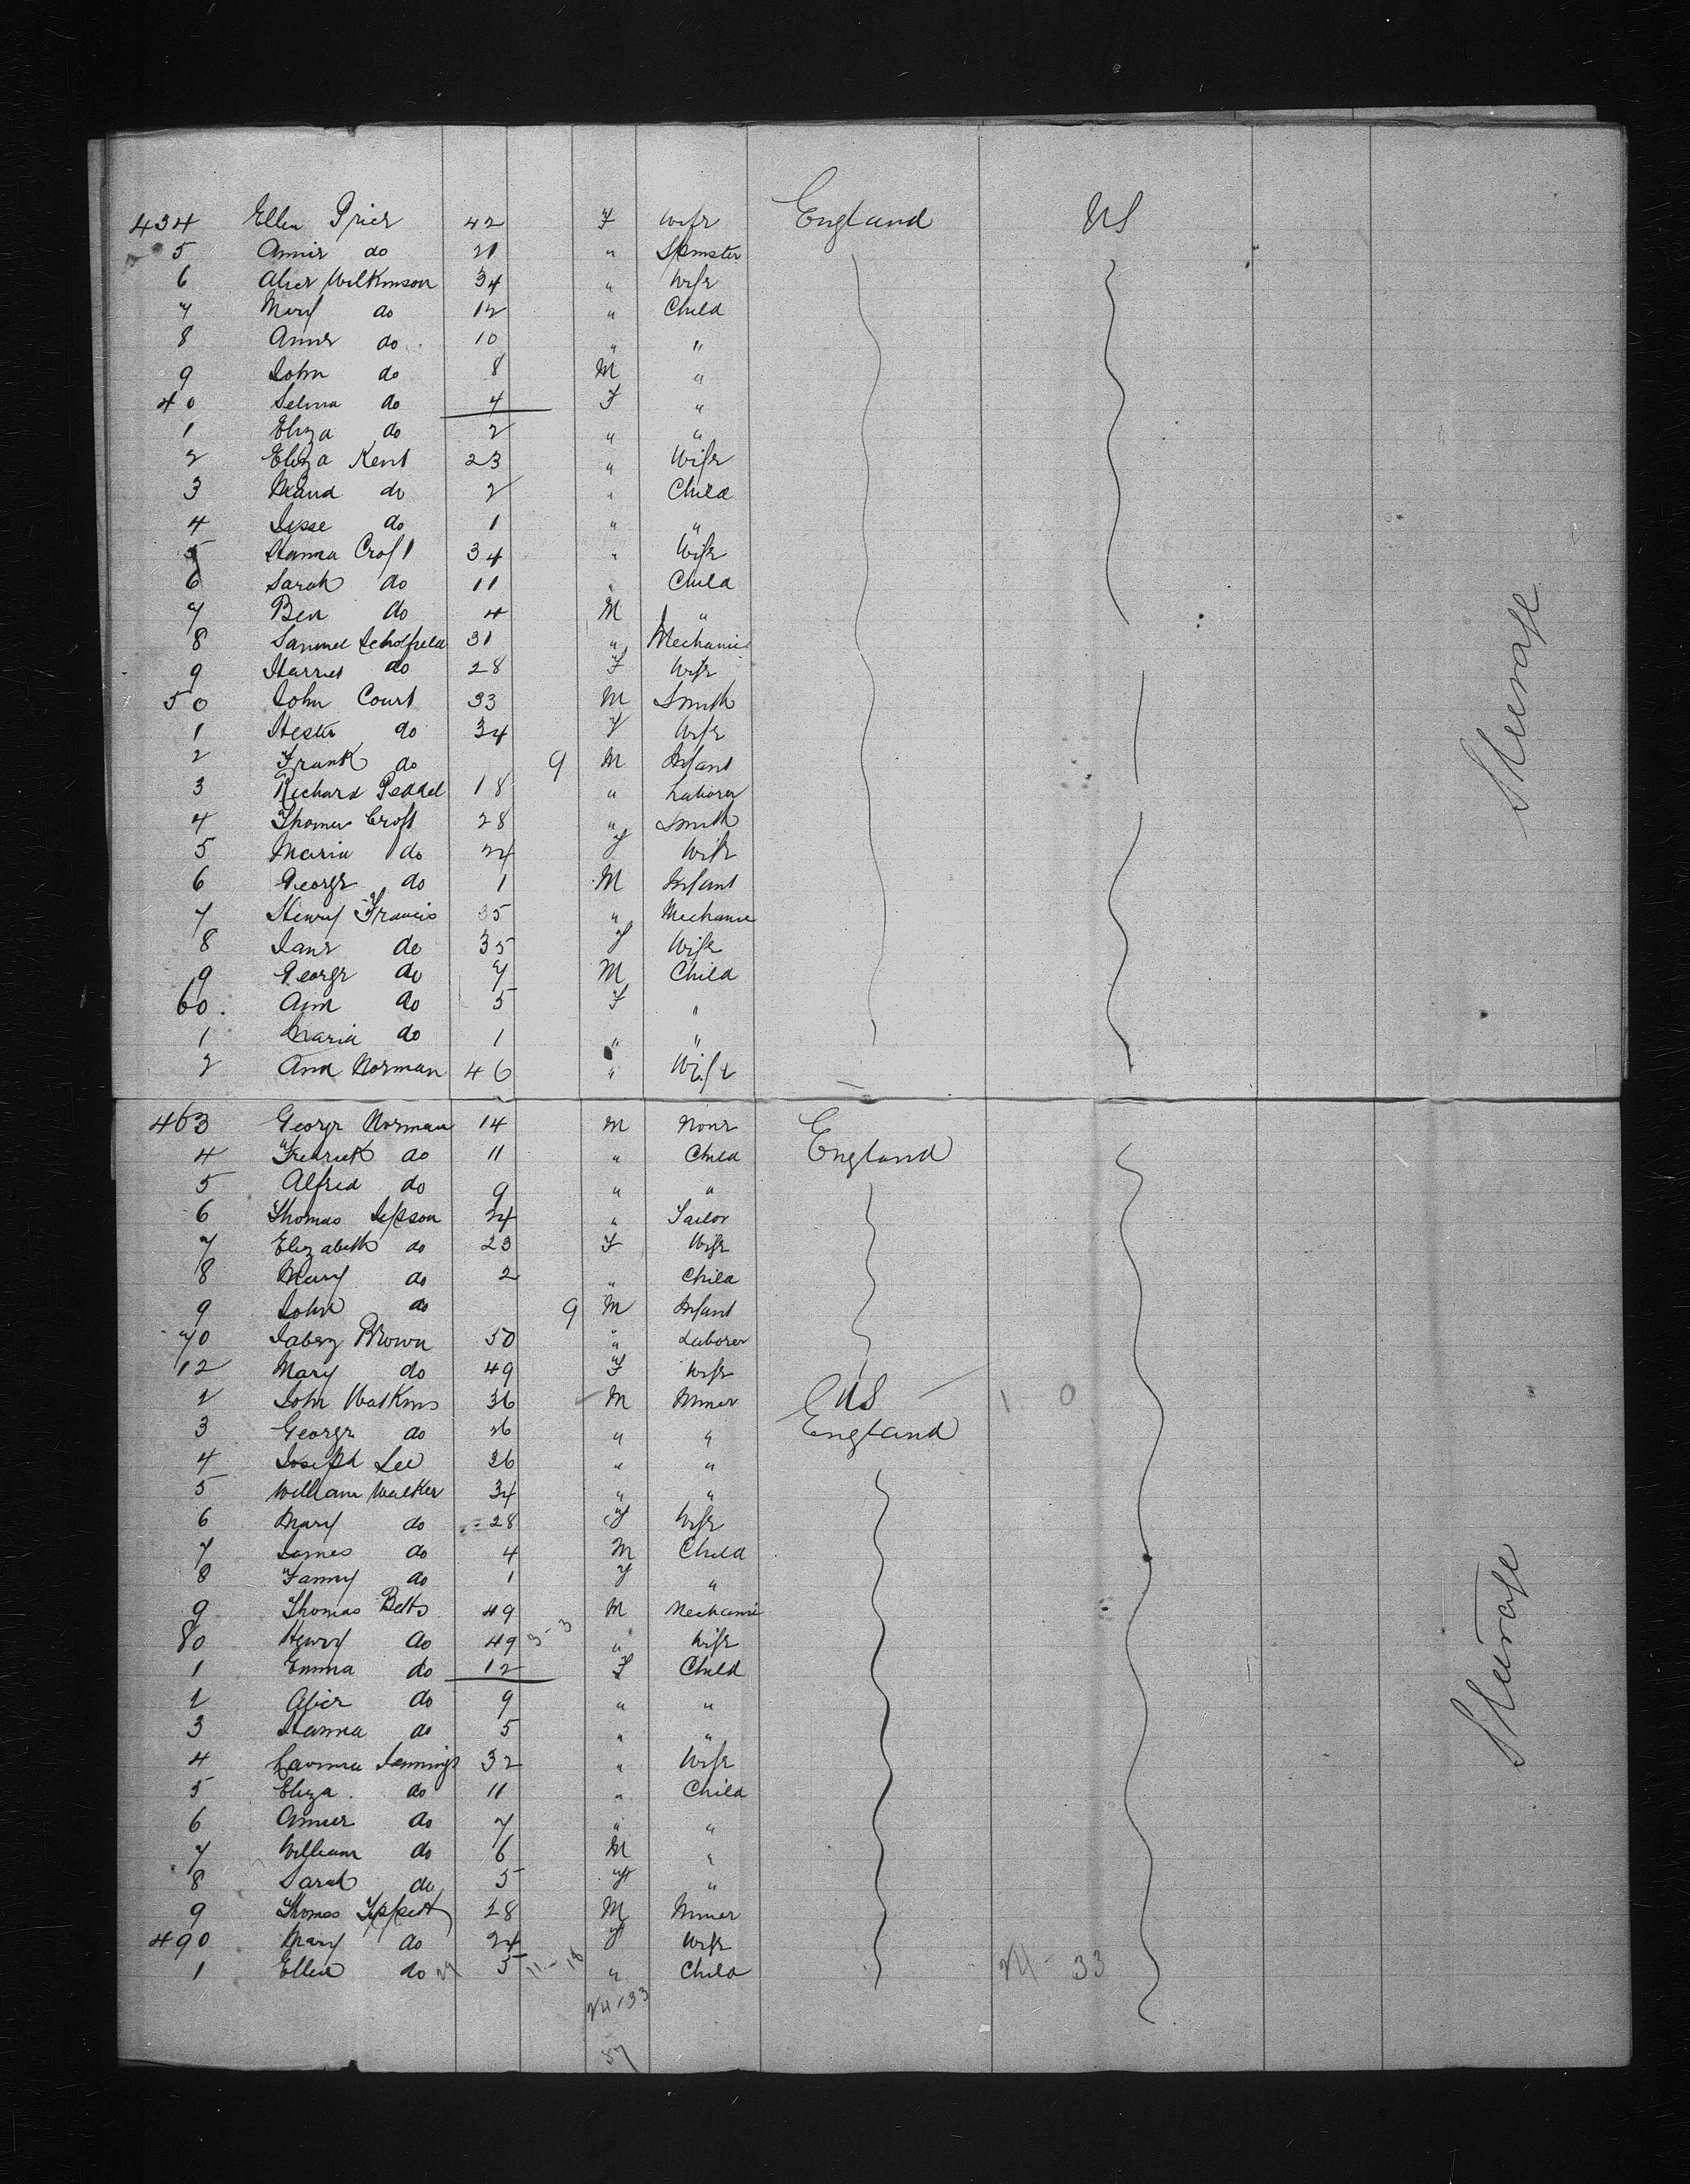 434 Ellen Prier 42 F Wife England US
5 Annie do 21 " Spinster
6 Alice Wilkinson 34 " Wife
7 Mary do 12 " Child
8 Annie do 10 " "
9 John do 8 M "
40 Selina do 4 F "
1 Eliza do 2 " "
2 Eliza Kent 23 " Wife
3 Maud do 2 " Child
4 Jesse do 1 " "
5 Hanna Croft 34 " Wife
6 Sarah do 11 " Child
7 Ben do 4 M "
8 Samuel Scholfield 31 " Mechanic
9 Harriet do 28 F Wife
50 John Court 33 M Smith
1 Hester do 34 F Wife
2 Frank do 9 M Infant
3 Richard Peddel 18 " Laborer
4 Thomas Croft 28 " Smith
5 Maria do 24 F Wife
6 George do 1 M Infant
7 Henry Francis 35 " Mechanic
8 Jane do 35 F Wife
9 George do 7 M Child
60 Ann do 5 F "
1 Maria do 1 " "
2 Ann Norman 46 " Wife
Steerage
463 George Norman 14 M None
4 Fredrick do 11 " Child England
5 Alfred do 9 " "
6 Thomas Jepson 24 " Tailor
7 Elizabeth do 23 F Wife
8 Mary do 2 " Child
9 John do 9 M Infant
70 Jabez Brown 50 " Laborer
12 Mary do 49 F Wife
2 John Watkins 36 M Miner US 1 0
3 George do 26 " " England
4 Joseph Lee 36 " "
5 William Walker 34 " "
6 Mary do 28 F Wife
7 James do 4 M Child
8 Fanny do 1 F "
9 Thomas Betts 49 M Mechanic
80 Henry do 49 3-3 " Wife
1 Emma do 12 F Child
2 Alice do 9 " "
3 Hanna do 5 " "
4 Lavinia Jennings 32 " Wife
5 Eliza do 11 " Child
6 Annie do 7 " "
7 William do 6 M "
8 Sarah do 5 F "
9 Thomas Tippett 28 M Miner
490 Mary do 24 F Wife
1 Ellen do 5 11-18 " Child 24-33
24/33
57
Steerage